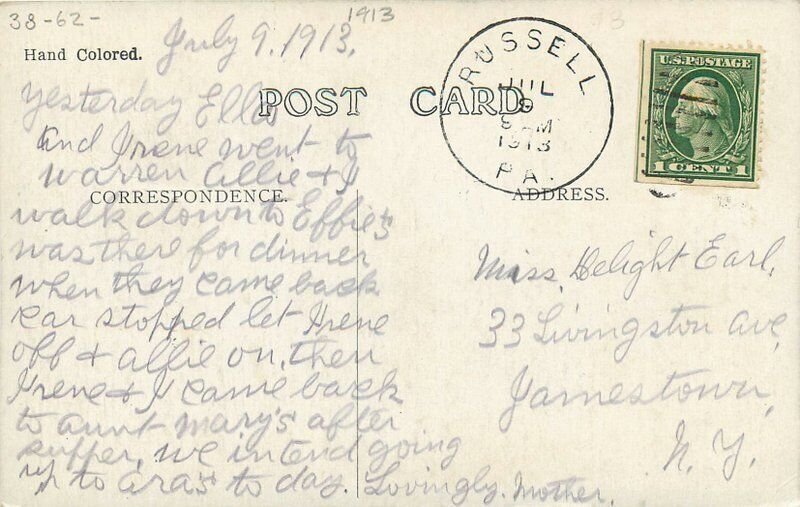 38-62-
1913
Hand Colored.
July 9, 1913.
POST CARD.
RUSSELL
JUL
9
AM
1913
PA.
U.S. POSTAGE
1 CENT 1
CORRESPONDENCE.
ADDRESS.
Yesterday Ella
and Irene went to
Warren Allie & I
walk down to Effie's
was there for dinner
when they came back
car stopped let Irene
off & Allie on, then
Irene & I came back
to aunt Mary's after
supper, we intend going
up to Ora's to day. Lovingly Mother.
Miss, Delight Earl,
33 Livingston ave,
Jamestown,
N. Y.